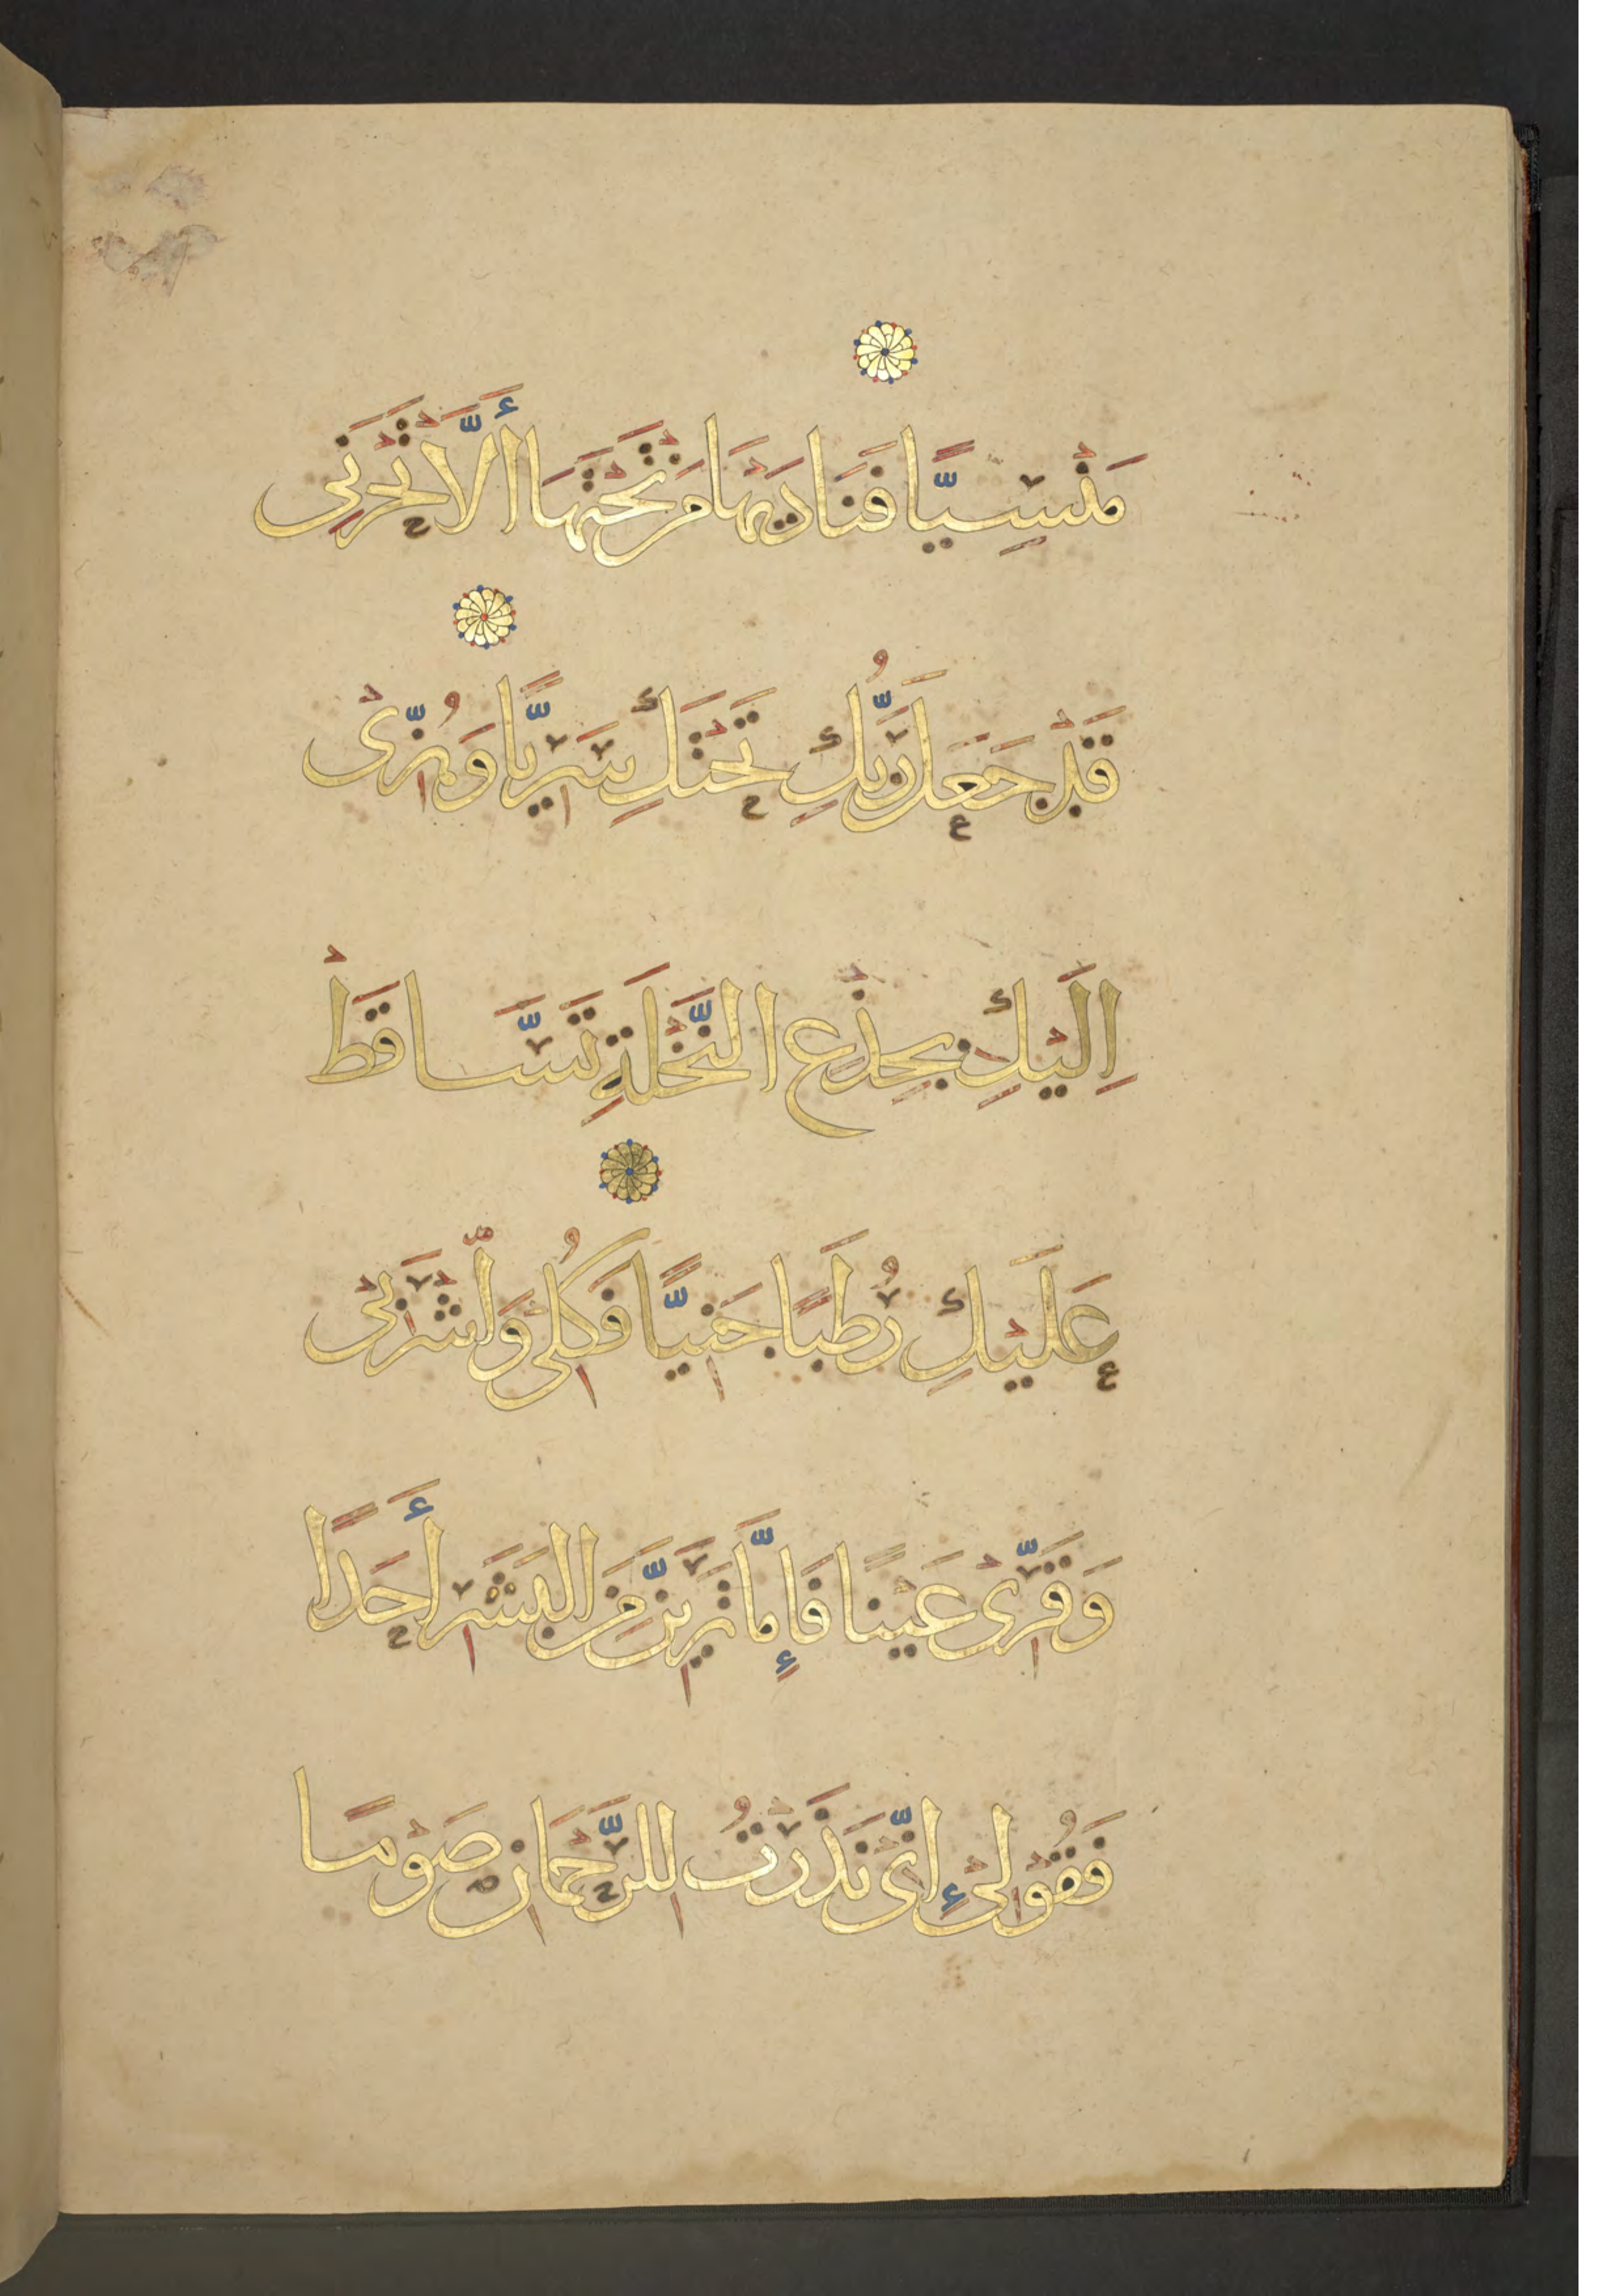 مَنْسِيًّا فَنَادَيهَا مَنْ تَحْتَهَا أَلَّا تَحْزَنِي
قَدْ جَعَلَ رَبُّكِ تَحْتَكِ سَرِيًّا وَهُزِّىْ
اِلَيْكِ بِجِذْعِ النَّخْلَةِ تَسَّاقَطْ
عَلَيْكِ رُطَبًا جَنِيًّا فَكُلِىْ وَاشْرَبِىْ
وَقَرِّىْ عَيْنًا فَإِمَّا تَرَيِنَّ مِنَ الْبَشَرِ أَحَدًا
فَقُوْلِىْ إِنِّىْ نَذَرْتُ لِلرَّحْمَانِ صَوْمًا